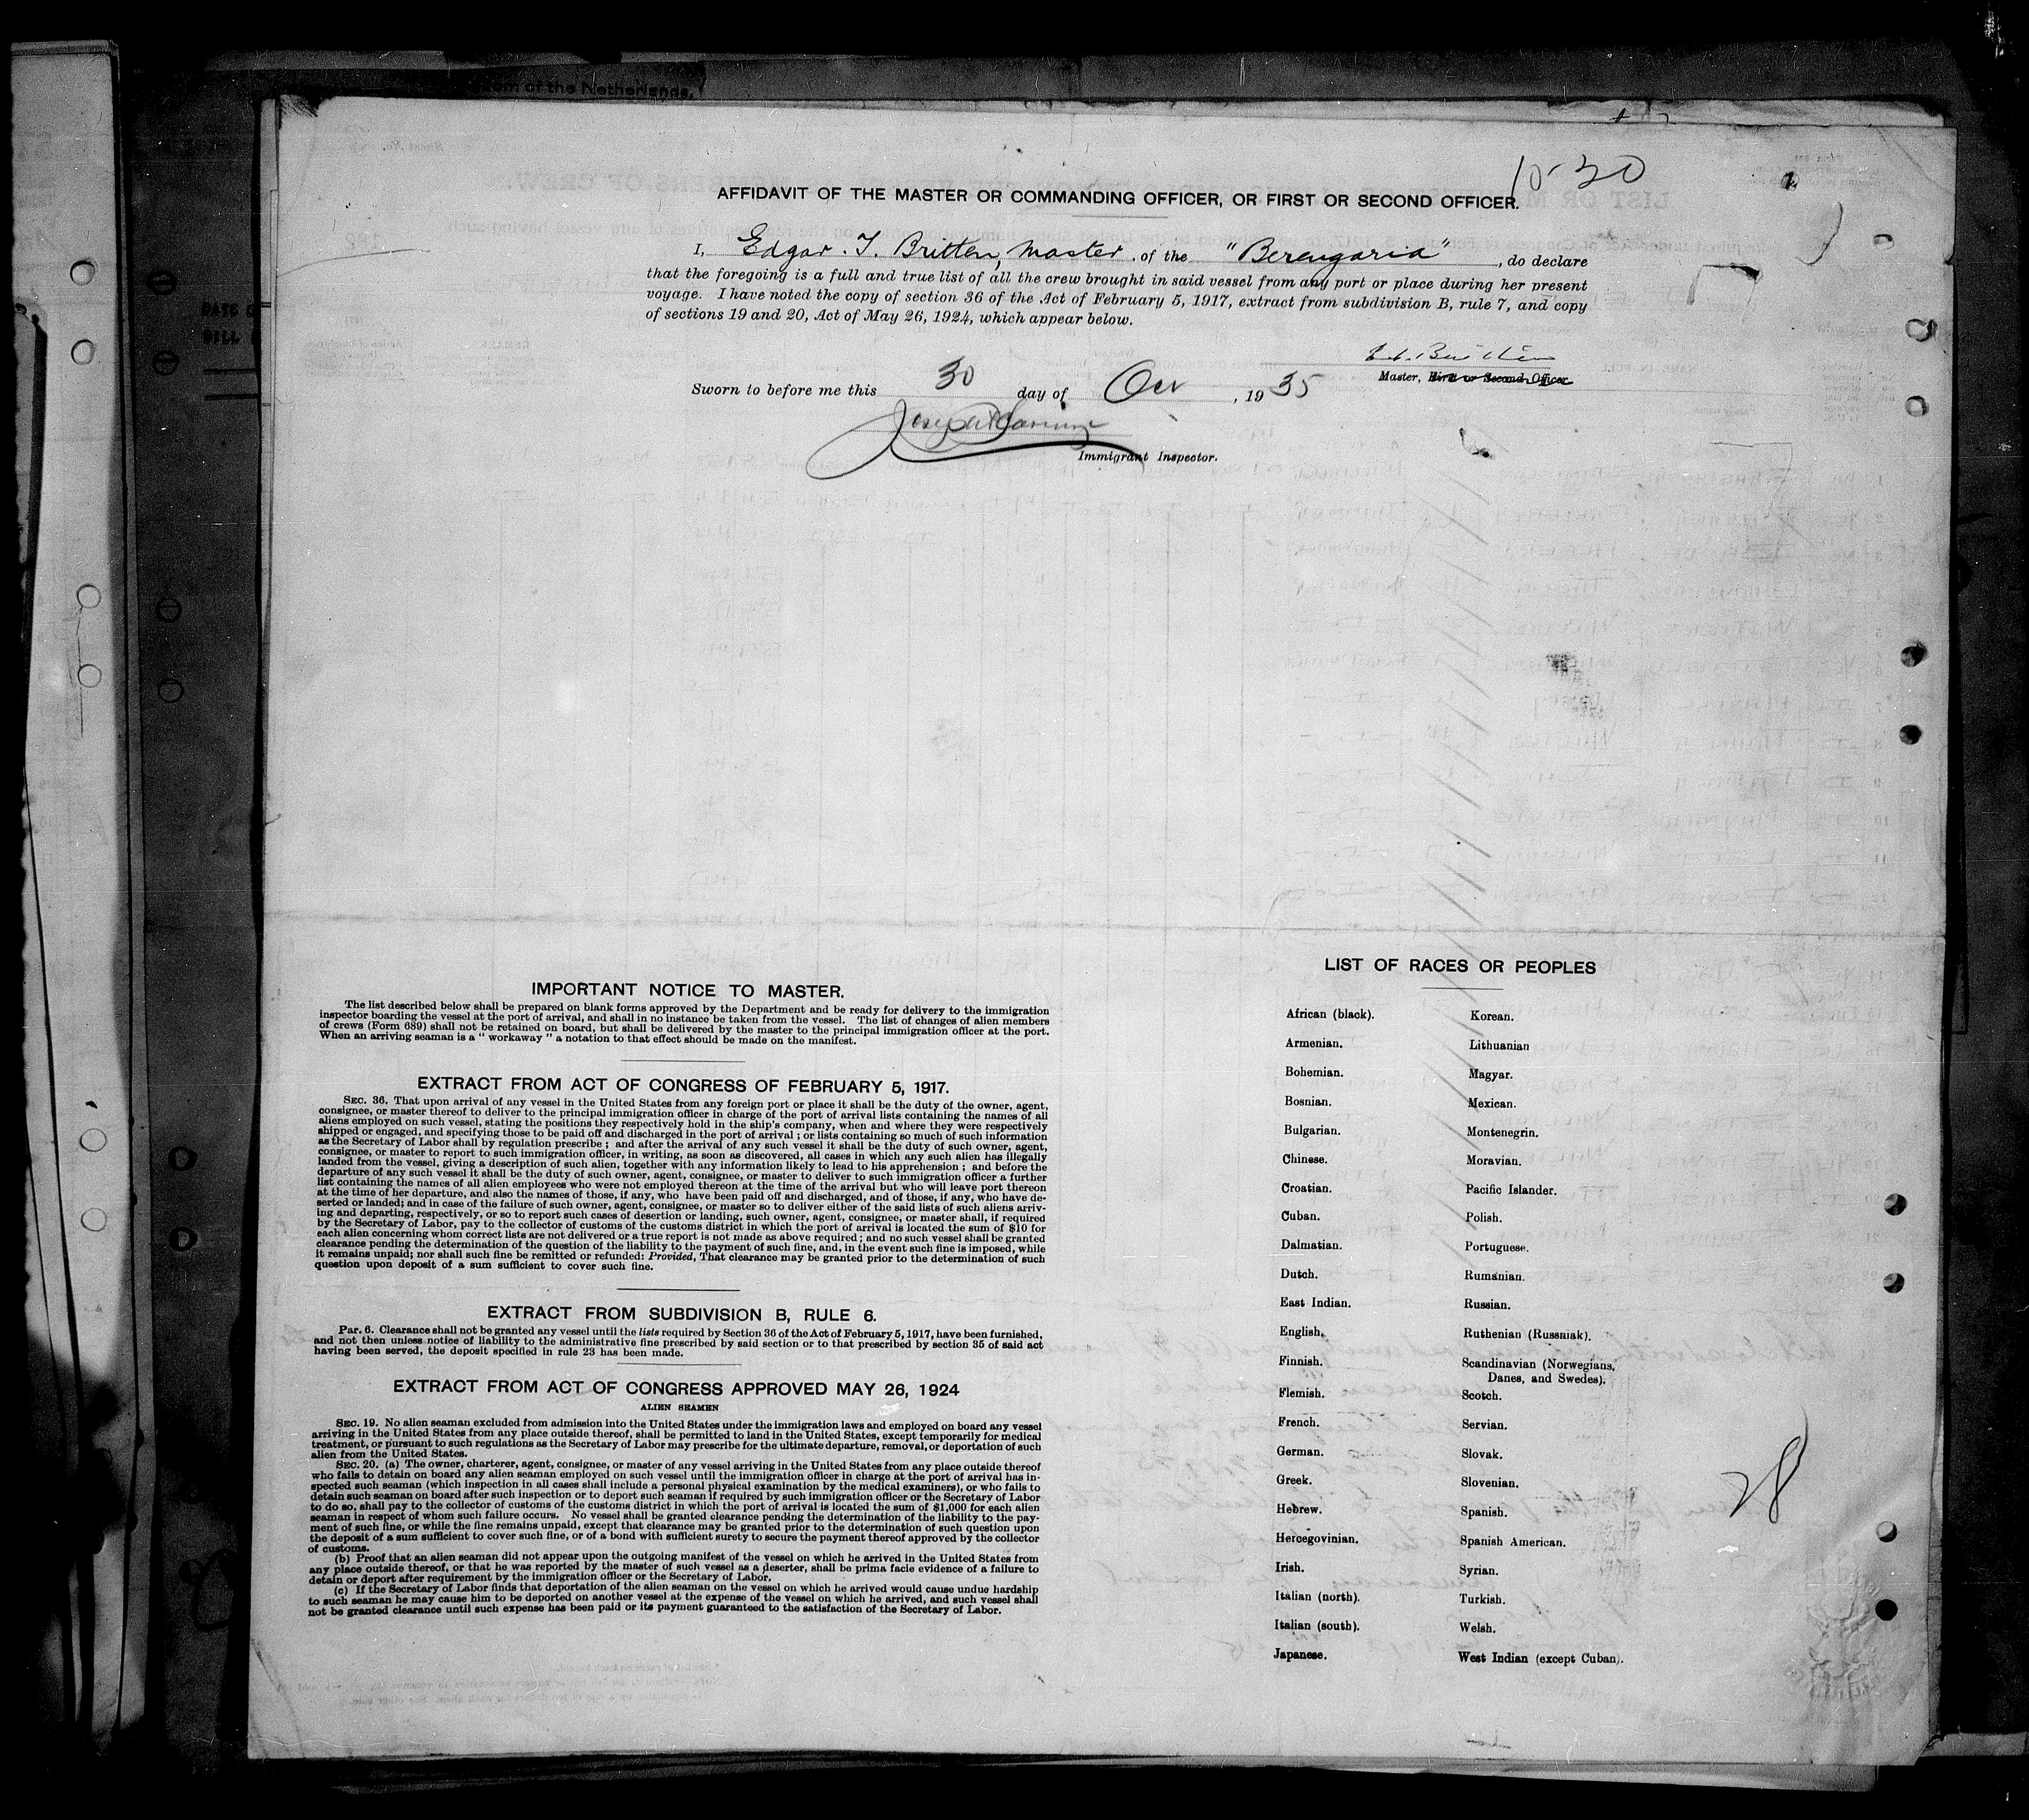 om of the Netherlands.
10-30
AFFIDAVIT OF THE MASTER OR COMMANDING OFFICER, OR FIRST OR SECOND OFFICER.
I, Edgar. T. Britten, Master, of the "Berengaria", do declare
that the foregoing is a full and true list of all the crew brought in said vessel from any port or place during her present
voyage. I have noted the copy of section 36 of the Act of February 5, 1917, extract from subdivision B, rule 7, and copy
of sections 19 and 20, Act of May 26, 1924, which appear below.
Master, First or Second Officer
Sworn to before me this 30 day of Oct, 1935
Immigrant Inspector.
IMPORTANT NOTICE TO MASTER.
The list described below shall be prepared on blank forms approved by the Department and be ready for delivery to the immigration
inspector boarding the vessel at the port of arrival, and shall in no instance be taken from the vessel. The list of changes of alien members
of crews (Form 689) shall not be retained on board, but shall be delivered by the master to the principal immigration officer at the port.
When an arriving seaman is a "workaway" a notation to that effect should be made on the manifest.
EXTRACT FROM ACT OF CONGRESS OF FEBRUARY 5, 1917.
SEC. 36. That upon arrival of any vessel in the United States from any foreign port or place it shall be the duty of the owner, agent,
consignee, or master thereof to deliver to the principal immigration officer in charge of the port of arrival lists containing the names of all
aliens employed on such vessel, stating the positions they respectively hold in the ship's company, when and where they were respectively
shipped or engaged, and specifying those to be paid off and discharged in the port of arrival; or lists containing so much of such information
as the Secretary of Labor shall by regulation prescribe; and after the arrival of any such vessel it shall be the duty of such owner, agent,
consignee, or master to report to such immigration officer, in writing, as soon as discovered, all cases in which any such alien has illegally
landed from the vessel, giving a description of such alien, together with any information likely to lead to his apprehension; and before the
departure of any such vessel it shall be the duty of such owner, agent, consignee, or master to deliver to such immigration officer a further
list containing the names of all alien employees who were not employed thereon at the time of the arrival but who will leave port thereon
at the time of her departure, and also the names of those, if any, who have been paid off and discharged, and of those, if any, who have de-
serted or landed; and in case of the failure of such owner, agent, consignee, or master so to deliver either of the said lists of such aliens arriv-
ing and departing, respectively, or so to report such cases of desertion or landing, such owner, agent, consignee, or master shall, if required
by the Secretary of Labor, pay to the collector of customs of the customs district in which the port of arrival is located the sum of $10 for
each alien concerning whom correct lists are not delivered or a true report is not made as above required; and no such vessel shall be granted
clearance pending the determination of the question of the liability to the payment of such fine, and, in the event such fine is imposed, while
it remains unpaid; nor shall such fine be remitted or refunded: Provided, That clearance may be granted prior to the determination of such
question upon deposit of a sum sufficient to cover such fine.
EXTRACT FROM SUBDIVISION B, RULE 6.
Par. 6. Clearance shall not be granted any vessel until the lists required by Section 36 of the Act of February 5, 1917, have been furnished,
and not then unless notice of liability to the administrative fine prescribed by said section or to that prescribed by section 35 of said act
having been served, the deposit specified in rule 23 has been made.
EXTRACT FROM ACT OF CONGRESS APPROVED MAY 26, 1924
ALIEN SEAMEN
SEC. 19. No alien seaman excluded from admission into the United States under the immigration laws and employed on board any vessel
arriving in the United States from any place outside thereof, shall be permitted to land in the United States, except temporarily for medical
treatment, or pursuant to such regulations as the Secretary of Labor may prescribe for the ultimate departure, removal, or deportation of such
alien from the United States.
SEC. 20. (a) The owner, charterer, agent, consignee, or master of any vessel arriving in the United States from any place outside thereof
who fails to detain on board any alien seaman employed on such vessel until the immigration officer in charge at the port of arrival has in-
spected such seaman (which inspection in all cases shall include a personal physical examination by the medical examiners), or who fails to
detain such seaman on board after such inspection or to deport such seaman if required by such immigration officer or the Secretary of Labor
to do so, shall pay to the collector of customs of the customs district in which the port of arrival is located the sum of $1,000 for each alien
seaman in respect of whom such failure occurs. No vessel shall be granted clearance pending the determination of the liability to the pay-
ment of such fine, or while the fine remains unpaid, except that clearance may be granted prior to the determination of such question upon
the deposit of a sum sufficient to cover such fine, or of a bond with sufficient surety to secure the payment thereof approved by the collector
of customs.
(b) Proof that an alien seaman did not appear upon the outgoing manifest of the vessel on which he arrived in the United States from
any place outside thereof, or that he was reported by the master of such vessel as a deserter, shall be prima facie evidence of a failure to
detain or deport after requirement by the immigration officer or the Secretary of Labor.
(c) If the Secretary of Labor finds that deportation of the alien seaman on the vessel on which he arrived would cause undue hardship
to such seaman he may cause him to be deported on another vessel at the expense of the vessel on which he arrived, and such vessel shall
not be granted clearance until such expense has been paid or its payment guaranteed to the satisfaction of the Secretary of Labor.
LIST OF RACES OR PEOPLES
African (black).
Armenian.
Bohemian.
Bosnian.
Bulgarian.
Chinese.
Croatian.
Cuban.
Dalmatian.
Dutch.
East Indian.
English.
Finnish.
Flemish.
French.
German.
Greek.
Hebrew.
Hercegovinian.
Irish.
Italian (north).
Italian (south).
Japanese.
Korean.
Lithuanian
Magyar.
Mexican.
Montenegrin.
Moravian.
Pacific Islander.
Polish.
Portuguese.
Rumanian.
Russian.
Ruthenian (Russniak).
Scandinavian (Norwegians,
Danes, and Swedes).
Scotch.
Servian.
Slovak.
Slovenian.
Spanish.
Spanish American.
Syrian.
Turkish.
Welsh.
West Indian (except Cuban).
28